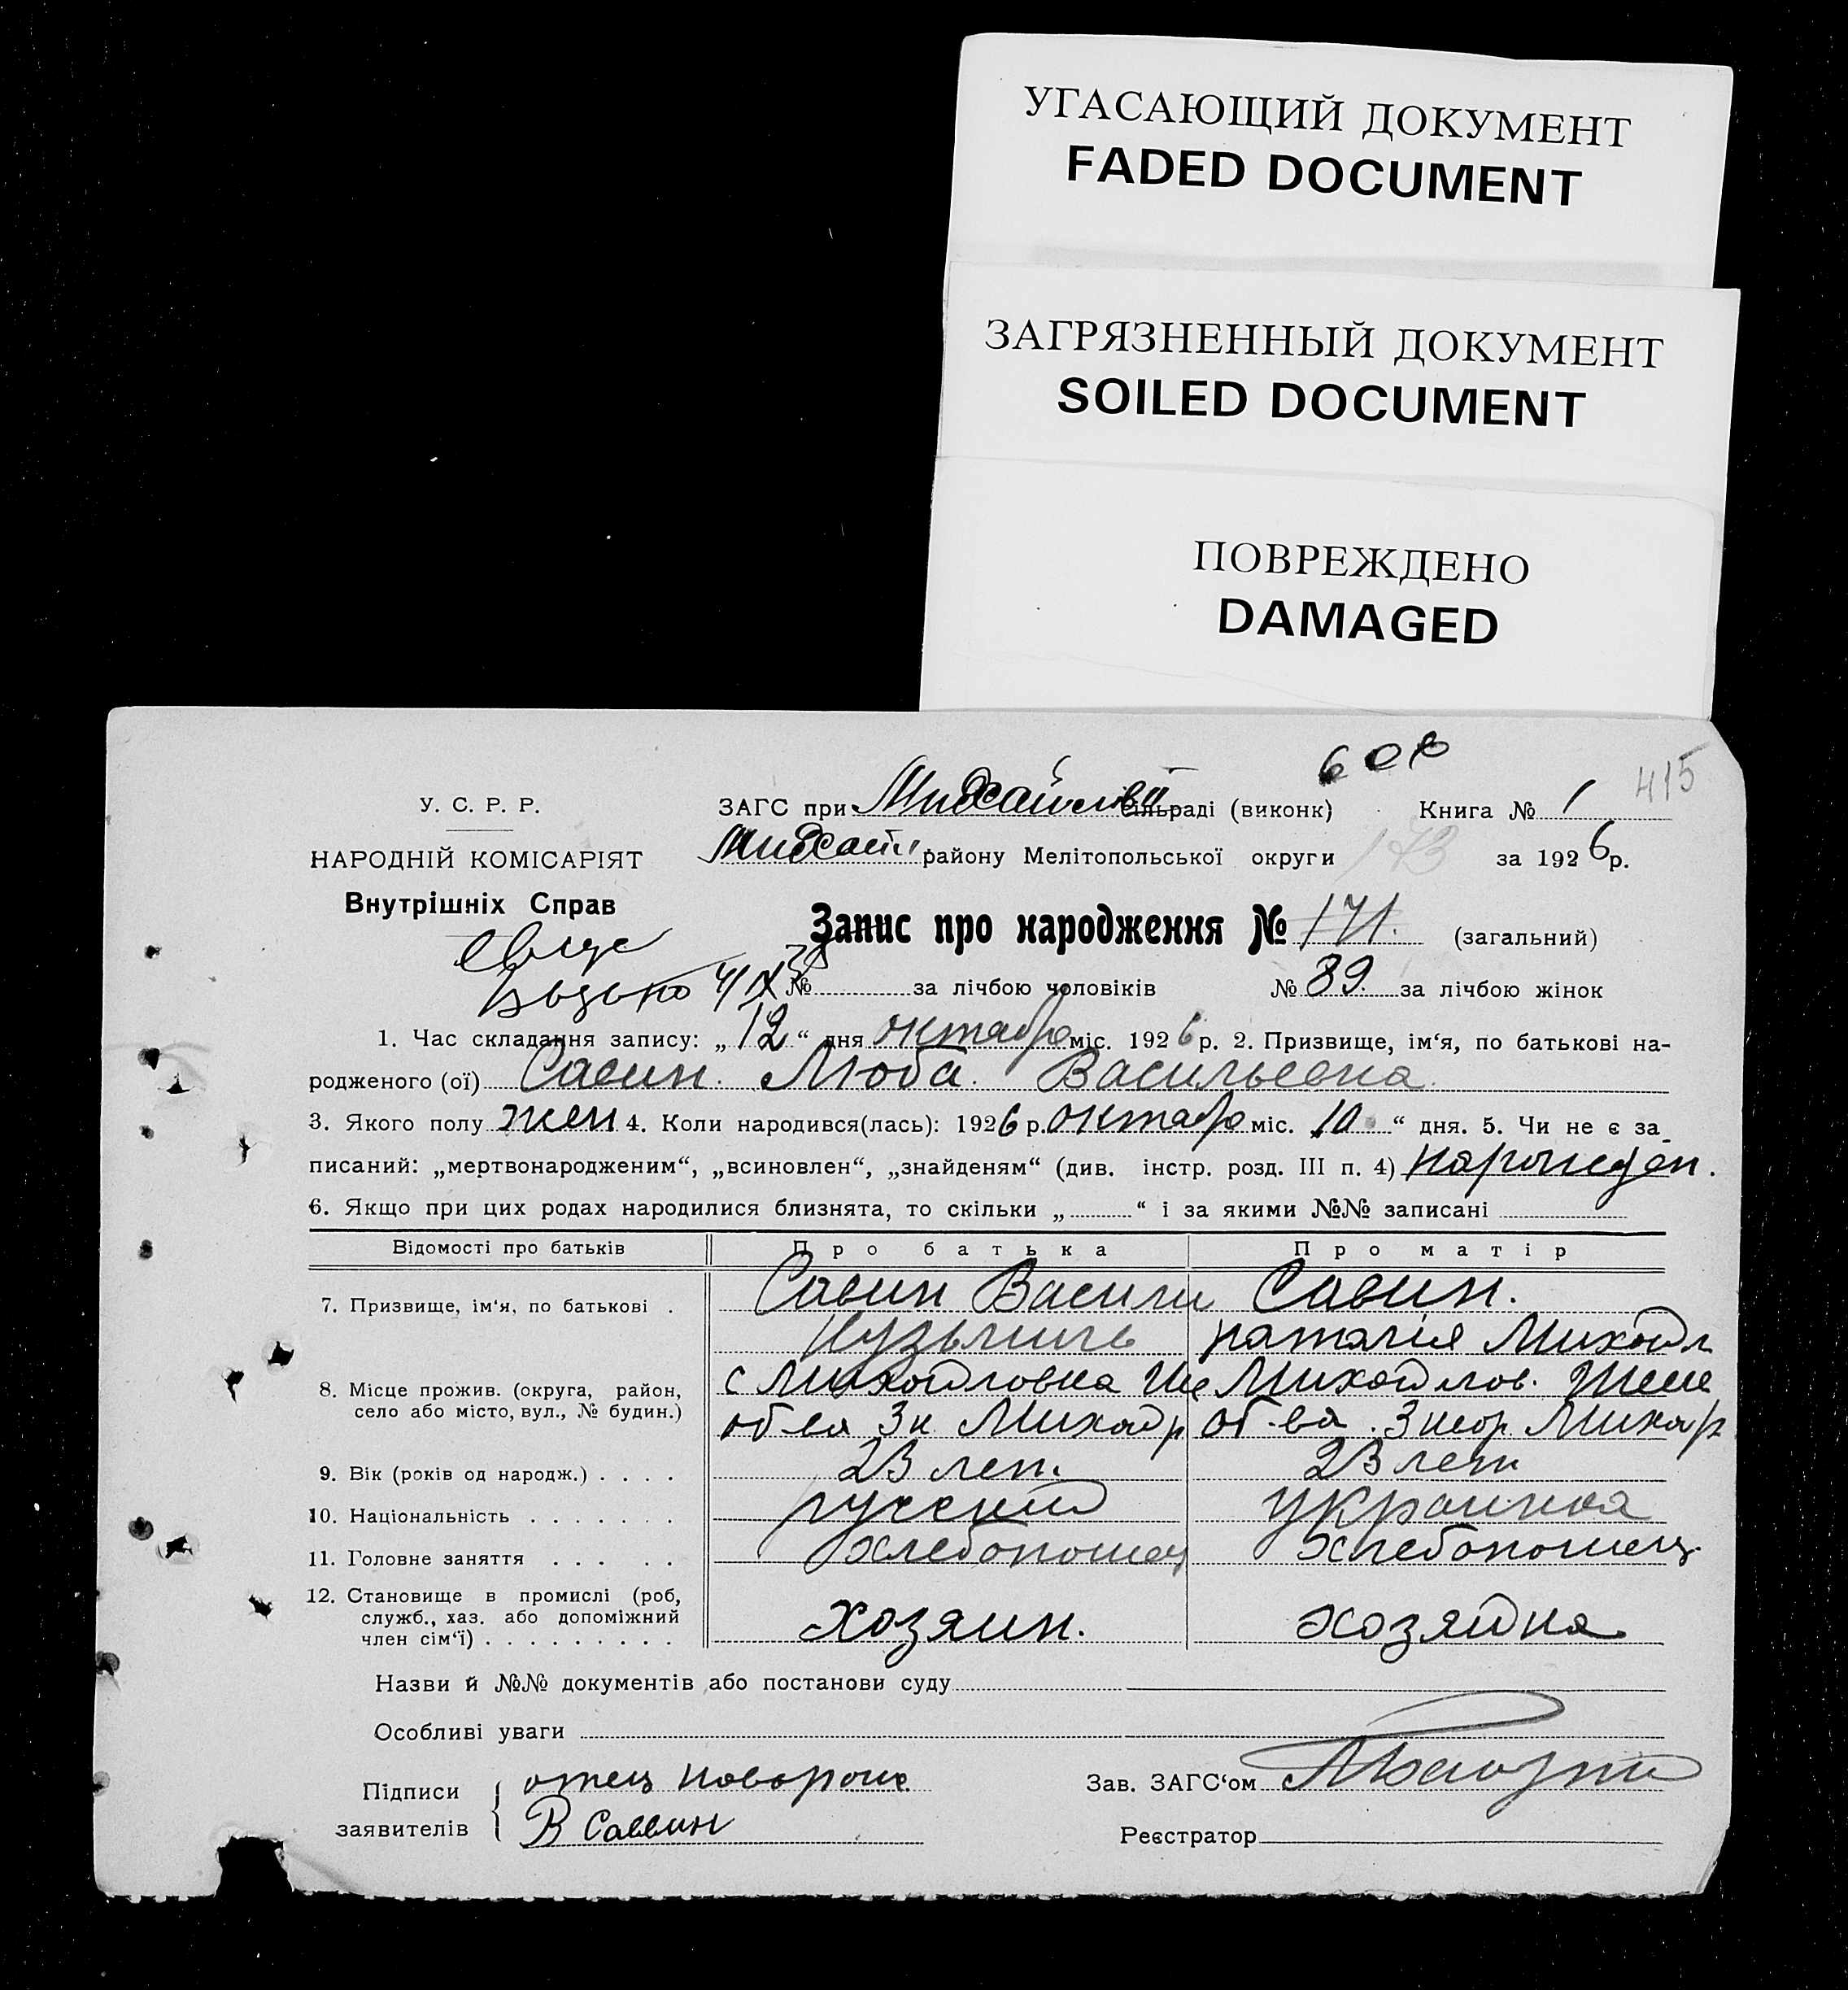 УГАСАЮЩИЙ ДОКУМЕНТ
FADED DOCUMENT
ЗАГРЯЗНЕННЫЙ ДОКУМЕНТ
SOILED DOCUMENT
ПОВРЕЖДЕНО
DAMAGED
415
У. С. Р. Р.
ЗАГС при Михайловй сільраді (виконк) Книга № 1
НАРОДНІЙ КОМІСАРІЯТ
Михайл. району Мелітопольської округи 173 за 1926 р.
Внутрішніх Справ
Запис про народження № 171. (загальний)
№ за лічбою чоловіків № 89. за лічбою жінок
1. Час складання запису: „12“ дня октабр міс. 1926 р. 2. Призвище, ім‘я, по батькові на-
родженого (ої) Савин. Люба. Васильевна.
3. Якого полу жен 4. Коли народився(лась): 1926 р. октабр міс. „10“ дня. 5. Чи не є за-
писаний: „мертвонародженим“, „всиновлен“, „знайденям“ (див. інстр. розд. III п. 4) нарожден.
6. Якщо при цих родах народилися близнята, то скільки „ “ і за якими №№ записані
Відомості про батьків Про батька Про матір
7. Призвище, ім‘я, по батькові . Савин Васили Савин.
Кузьмичь наталія Михайл
8. Місце прожив. (округа, район, село або місто, вул., № будин.) с Михайловка Михайлов.
об-ва 3 к Михайр об-ва. 3 Михар
9. Вік (років од народж.) . . . . 23 лет. 23 лет
10. Національність . . . . . . . русский украинка
11. Головне заняття . . . . . хлебопошец хлебопошец.
12. Становище в промислі (роб, служб., хаз. або допоміжний член сім‘ї) . . . . . . . . . хозяин. хозяйка
Назви й №№ документів або постанови суду
Особливі уваги
Підписи отец новорож
Зав. ЗАГС‘ом
заявителів В Саввин
Реєстратор